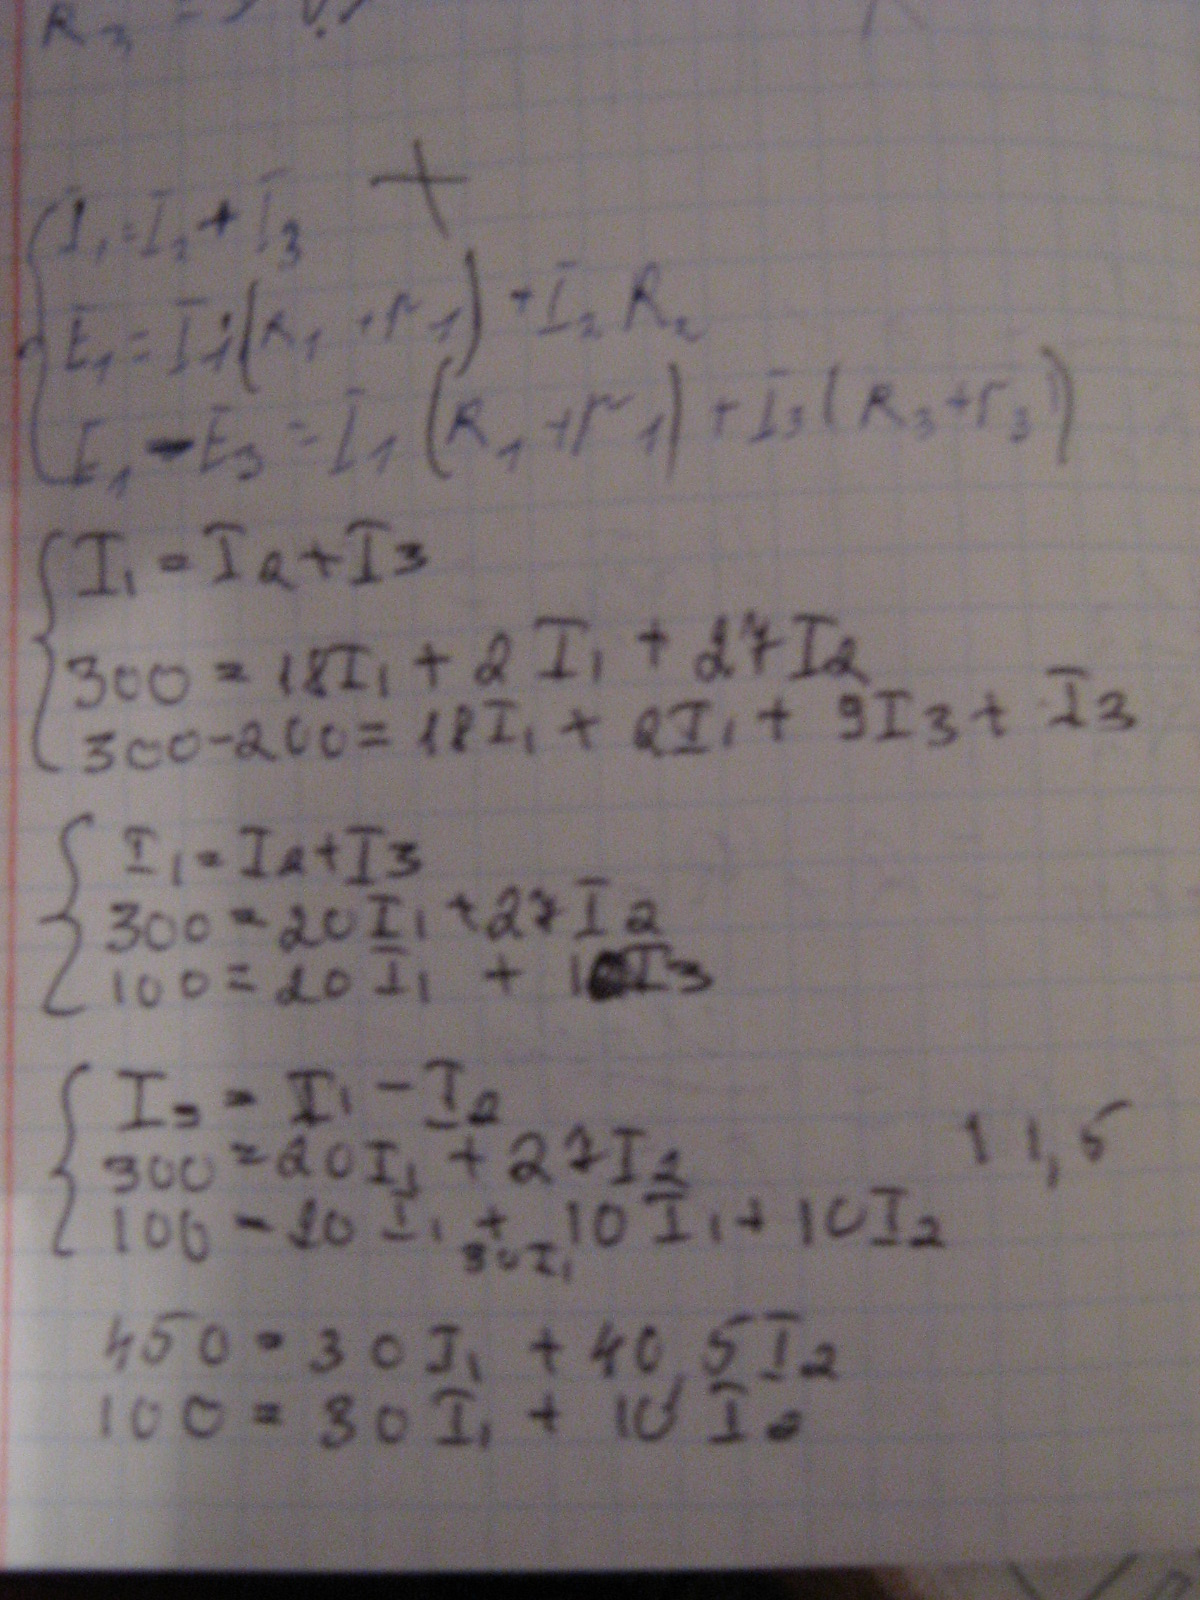 R3 =
I1 = I2 + I3
E1 = I1(R1 + r1) + I2 R2
E1 - E3 = I1(R1 + r1) + I3(R3 + r3)
I1 = I2 + I3
300 = 18I1 + 2I1 + 27I2
300 - 200 = 18I1 + 2I1 + 9I3 + I3
I1 = I2 + I3
300 = 20I1 + 27I2
100 = 20I1 + 10I3
I3 = I1 - I2
300 = 20I1 + 27I2
11,5
100 - 20I1 + 10I1 + 10I2
30I1
450 = 30I1 + 40,5I2
100 = 30I1 + 10I2